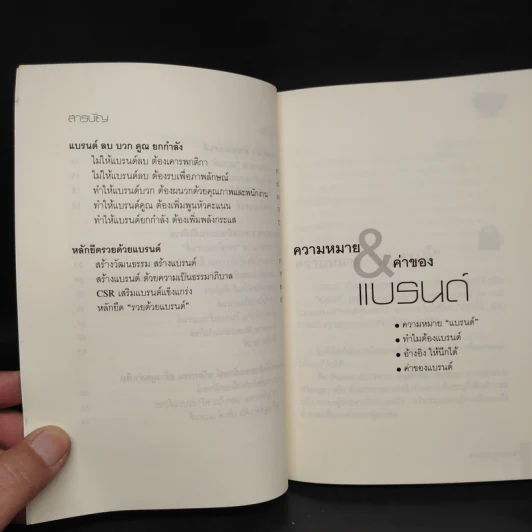 สารบัญ
แบรนด์ ลบ บวก คูณ ยกกำลัง
ไม่ให้แบรนด์ลบ ต้องเคารพกติกา
ไม่ให้แบรนด์ลบ ต้องรบเพื่อภาพลักษณ์
ทำให้แบรนด์บวก ต้องผนวกด้วยคุณภาพและพนักงาน
ทำให้แบรนด์คูณ ต้องเพิ่มพูนหัวคะแนน
ทำให้แบรนด์ยกกำลัง ต้องเพิ่มพลังกระแส
หลักยึดรวยด้วยแบรนด์
สร้างวัฒนธรรม สร้างแบรนด์
สร้างแบรนด์ ด้วยความเป็นธรรมาภิบาล
CSR เสริมแบรนด์แข็งแกร่ง
หลักยึด "รวยด้วยแบรนด์"
ความหมาย
&
ค่าของ
แบรนด์
• ความหมาย "แบรนด์"
• ทำไมต้องแบรนด์
• อ้างอิง ให้นึกได้
• ค่าของแบรนด์